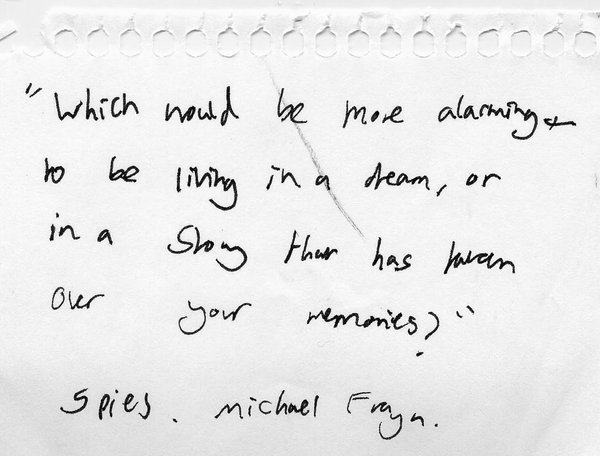 "Which would be more alarming -
to be living in a dream, or
in a story that has taken
over your memories?"
Spies. Michael Frayn.